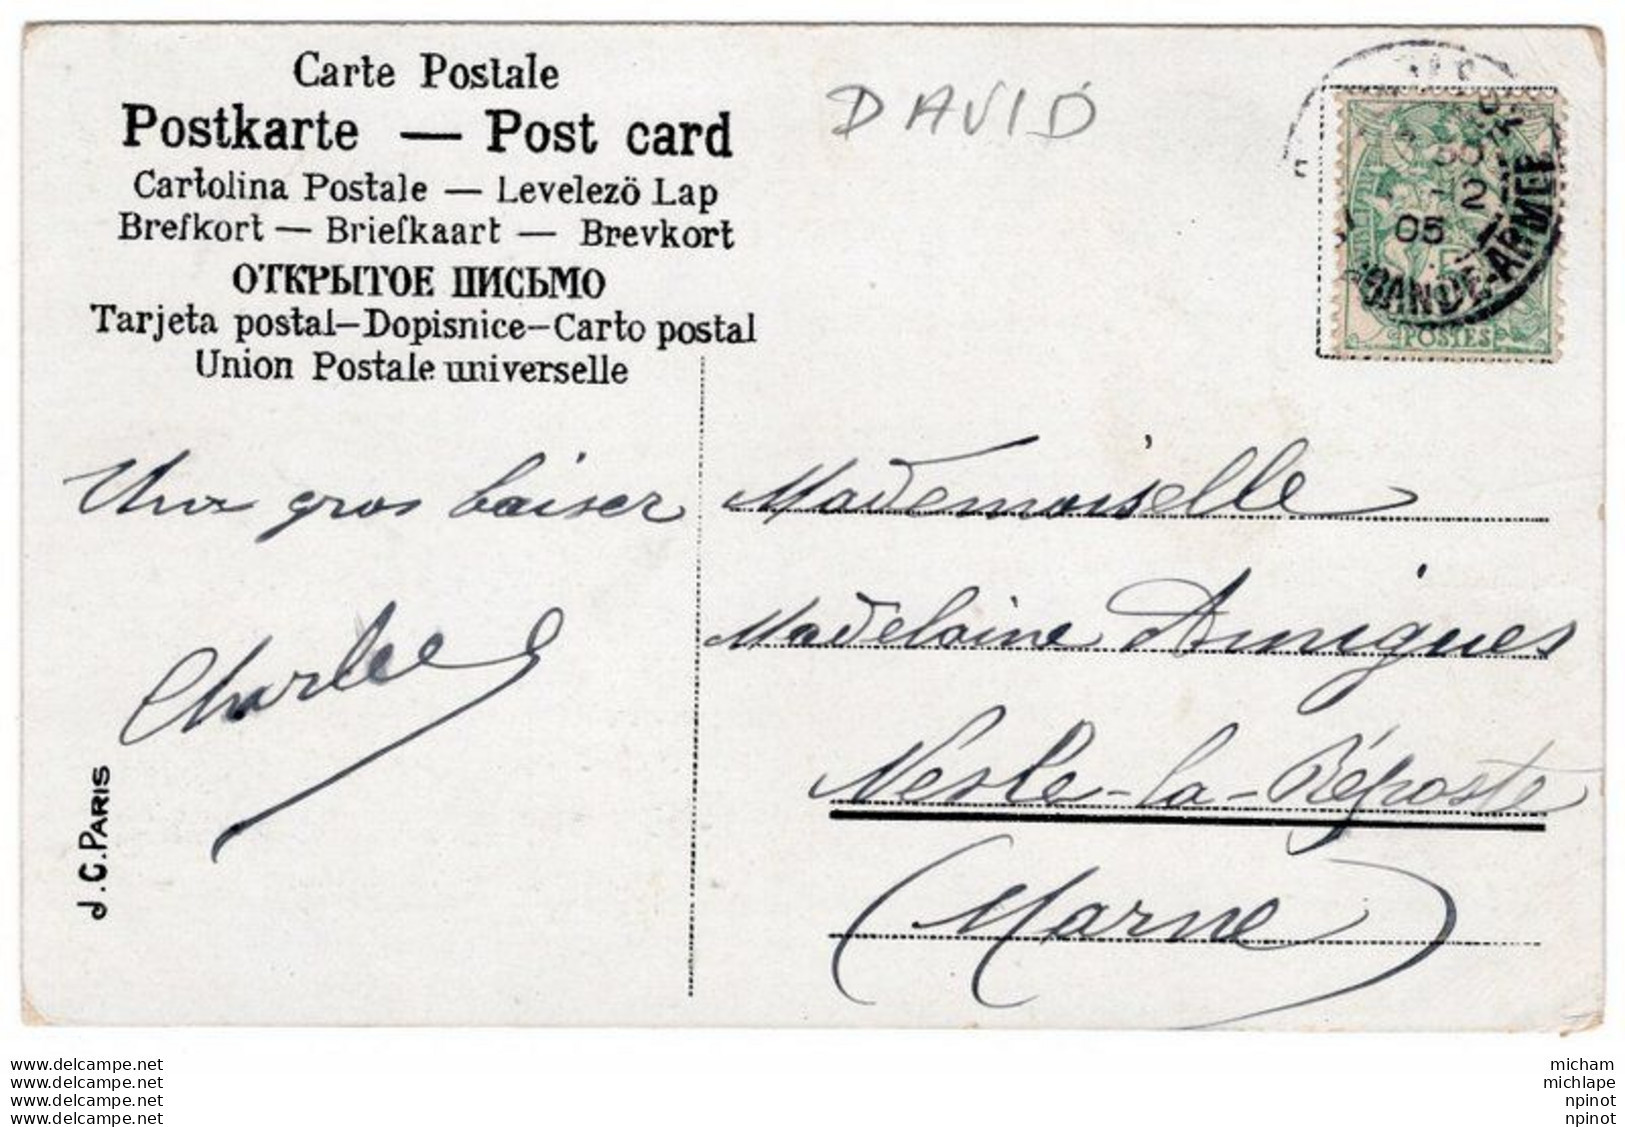 Carte Postale
Postkarte — Post card
Cartolina Postale — Levelezö Lap
Brefkort — Briefkaart — Brevkort
ОТКРЫТОЕ ПИСЬМО
Tarjeta postal—Dopisnice—Carto postal
Union Postale universelle
DAVID
05
GRANDE-ARMEE
POSTES
Un gros baiser
Charles
J.C. PARIS
Mademoiselle
Madelaine Amigues
Nesle-la-Réposte
(Marne)
delcampe.net
delcampe.net
delcampe.net
delcampe.net
micham
michlape
npinot
npinot